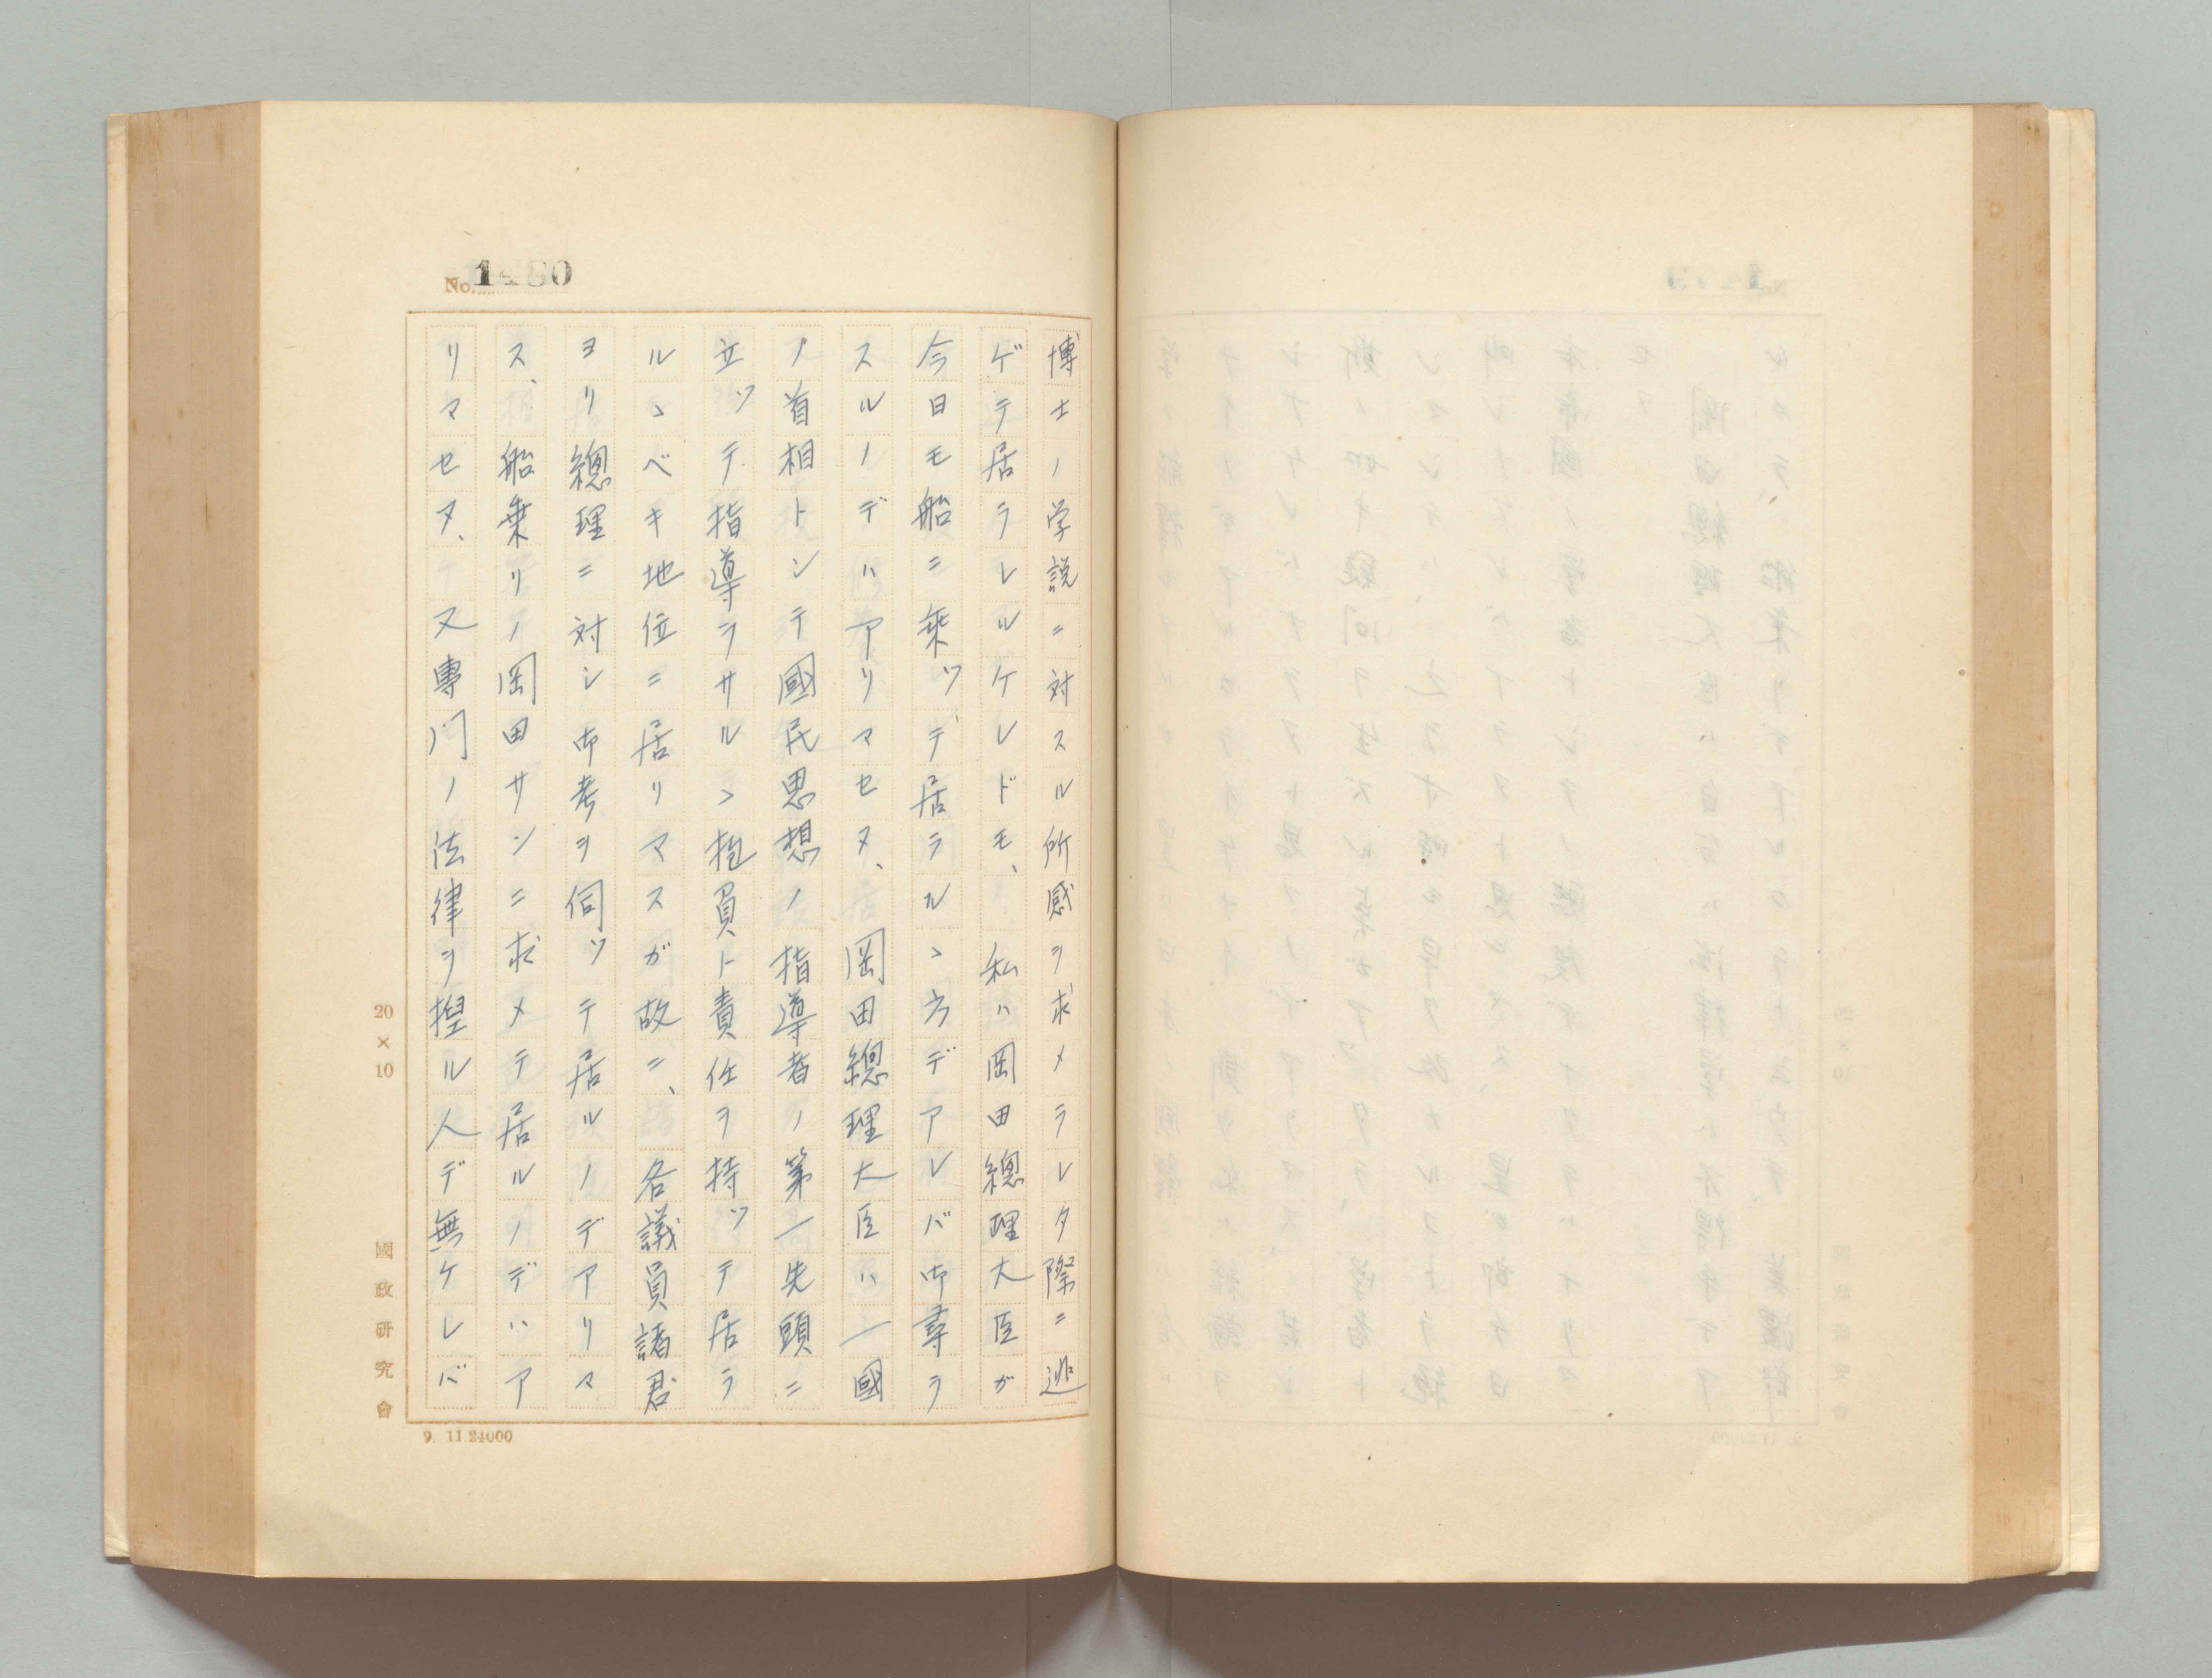 No. 1480
博士ノ学説ニ対スル所感ヲ求メラレタ際ニ逃
ゲテ居ラレルケレドモ、私ハ岡田總理大臣ガ
今日モ船ニ乘ツデ居ラルヽ方デアレバ御尋ラ
スルノデハアリマセヌ、岡田總理大臣ハ一國
ノ首相トシテ國民思想ノ指導者ノ第一先頭ニ
立ツテ指導ヲサルヽ抱負ト責任ヲ持ツテ居ラ
ルヽベキ地位ニ居リマスガ故ニ、各議員諸君
ヨリ總理ニ対シ御考ヲ伺ツテ居ルノデアリマ
ス、船乗リノ岡田サンニ求メテ居ルノデハア
リマセヌ、又專門ノ法律ヲ揑ル人デ無ケレバ
20×10
國政研究會
9. 11.24000